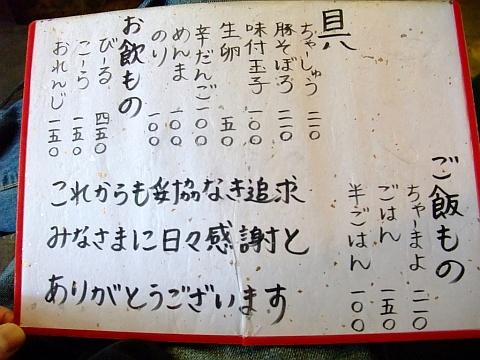 具
ちゃーしゅう 二一〇
豚そぼろ 二二〇
味付玉子 一〇〇
生卵 五〇
辛だんご 一〇〇
めんま 一〇〇
のり 一〇〇
お飲もの
びーる 四五〇
こーら 一五〇
おれんじ 一五〇
ご飯もの
ちゃーまよ 二一〇
ごはん 一五〇
半ごはん 一〇〇
これからも妥協なき追求
みなさまに日々感謝と
ありがとうございます